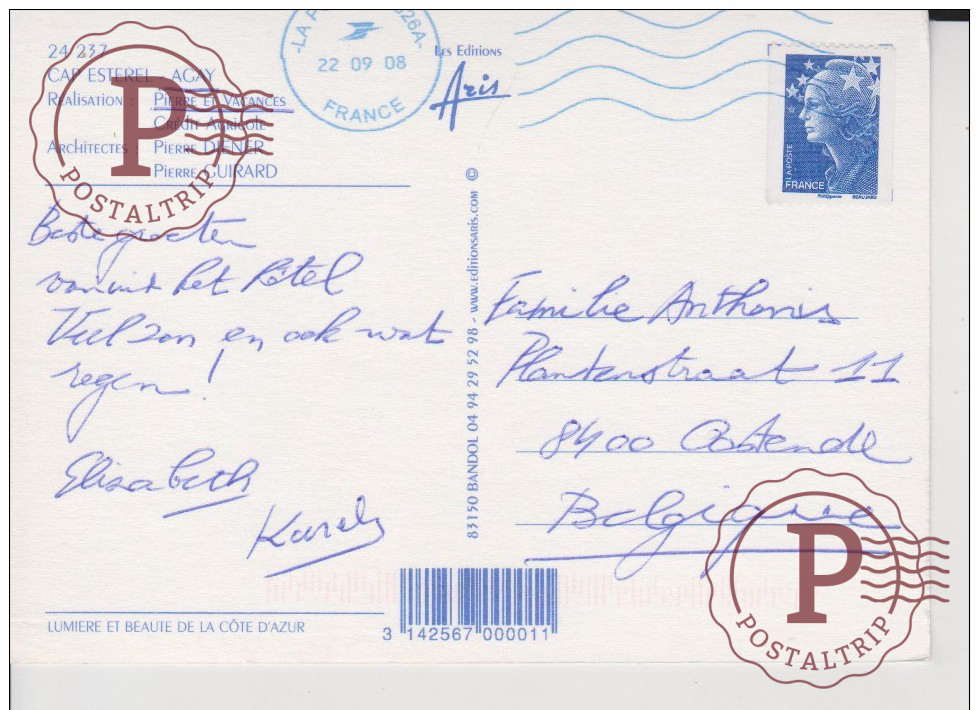 24 237
CAP ESTEREL - AGAY
Réalisation : Pierre et Vacances
Crédit Agricole
Architectes : Pierre DIENER
Pierre GUIRARD
LA
26A-
22 09 08
FRANCE
Les Editions
Aris
LA POSTE
FRANCE
BEAUJARD
P
POSTALTRIP
Beste groeten
vanuit het hôtel
Veel zon en ook wat
regen!
Elisabeth
Karel
83150 BANDOL 04 94 29 52 98 - www.editionsaris.com ©
Familie Anthonis
Plantenstraat 11
8400 Oostende
Belgique
LUMIERE ET BEAUTE DE LA CÔTE D'AZUR
3 142567 000011
P
POSTALTRIP